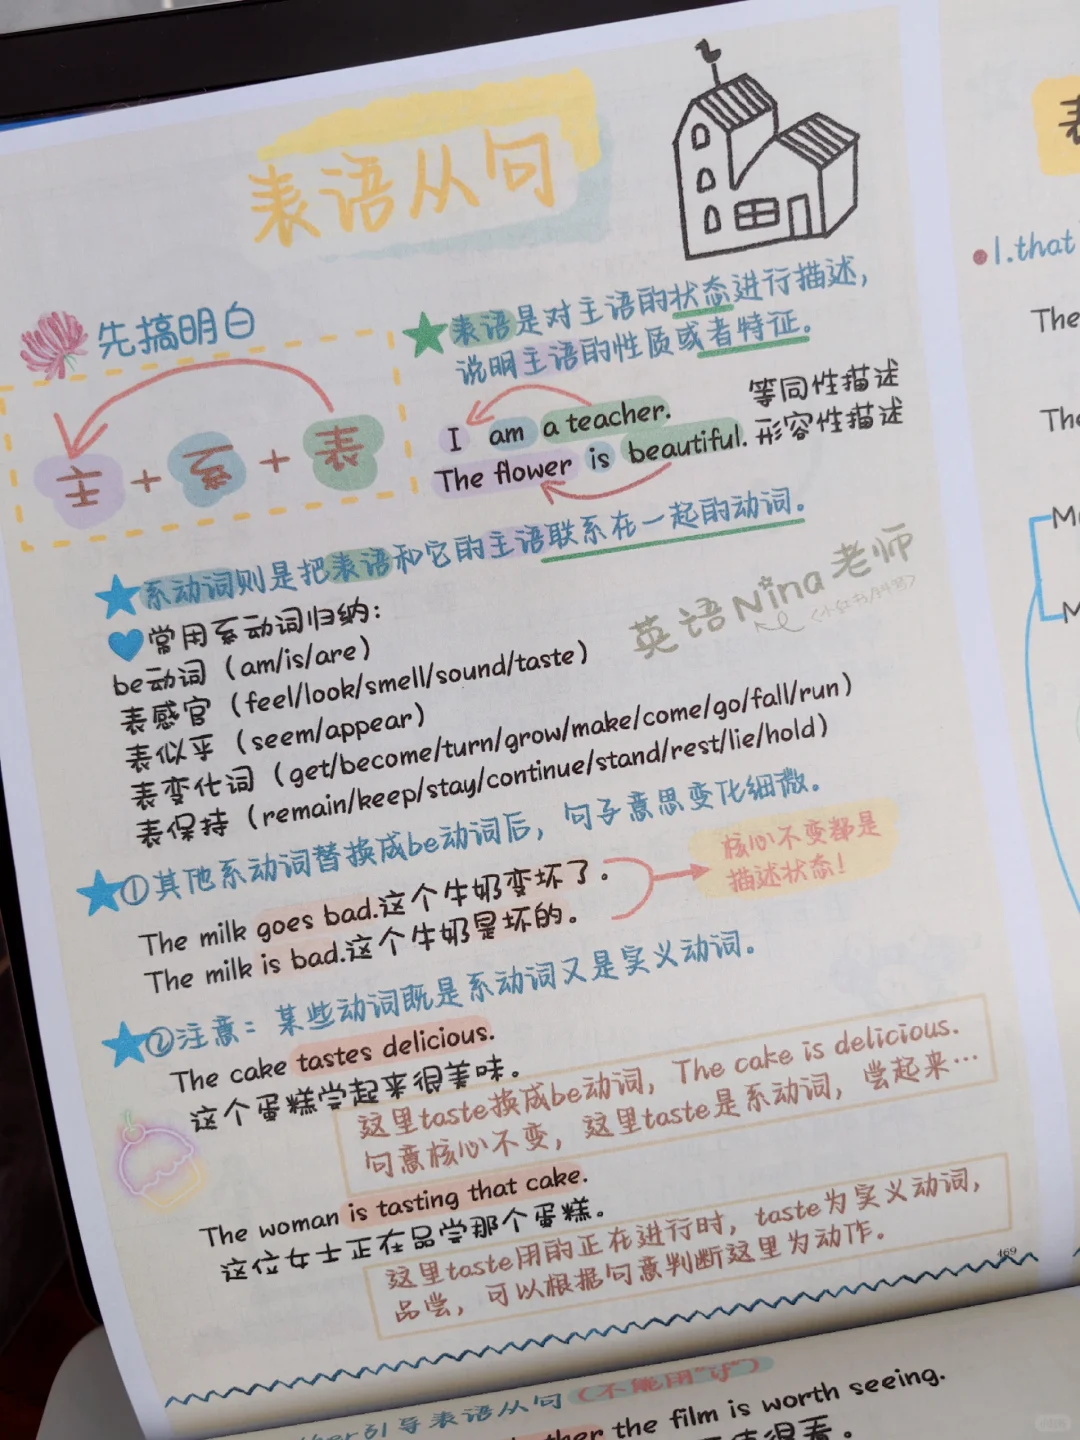 表语从句
先搞明白
主 + 系 + 表
表语是对主语的状态进行描述，
说明主语的性质或者特征。
I am a teacher. 等同性描述
The flower is beautiful. 形容性描述
系动词则是把表语和它的主语联系在一起的动词。
英语Nina老师
常用系动词归纳：
be动词（am/is/are）
表感官（feel/look/smell/sound/taste）
表似乎（seem/appear）
表变化词（get/become/turn/grow/make/come/go/fall/run）
表保持（remain/keep/stay/continue/stand/rest/lie/hold）
①其他系动词替换成be动词后，句子意思变化细微。
The milk goes bad.这个牛奶变坏了。
The milk is bad.这个牛奶是坏的。
核心不变都是
描述状态！
②注意：某些动词既是系动词又是实义动词。
The cake tastes delicious.
这个蛋糕尝起来很美味。
这里taste换成be动词，The cake is delicious.
句意核心不变，这里taste是系动词，尝起来…
The woman is tasting that cake.
这位女士正在品尝那个蛋糕。
这里taste用的正在进行时，taste为实义动词，
品尝，可以根据句意判断这里为动作。
469
引导表语从句（不能用“if”）
the film is worth seeing.
很看。
1.that
The
The